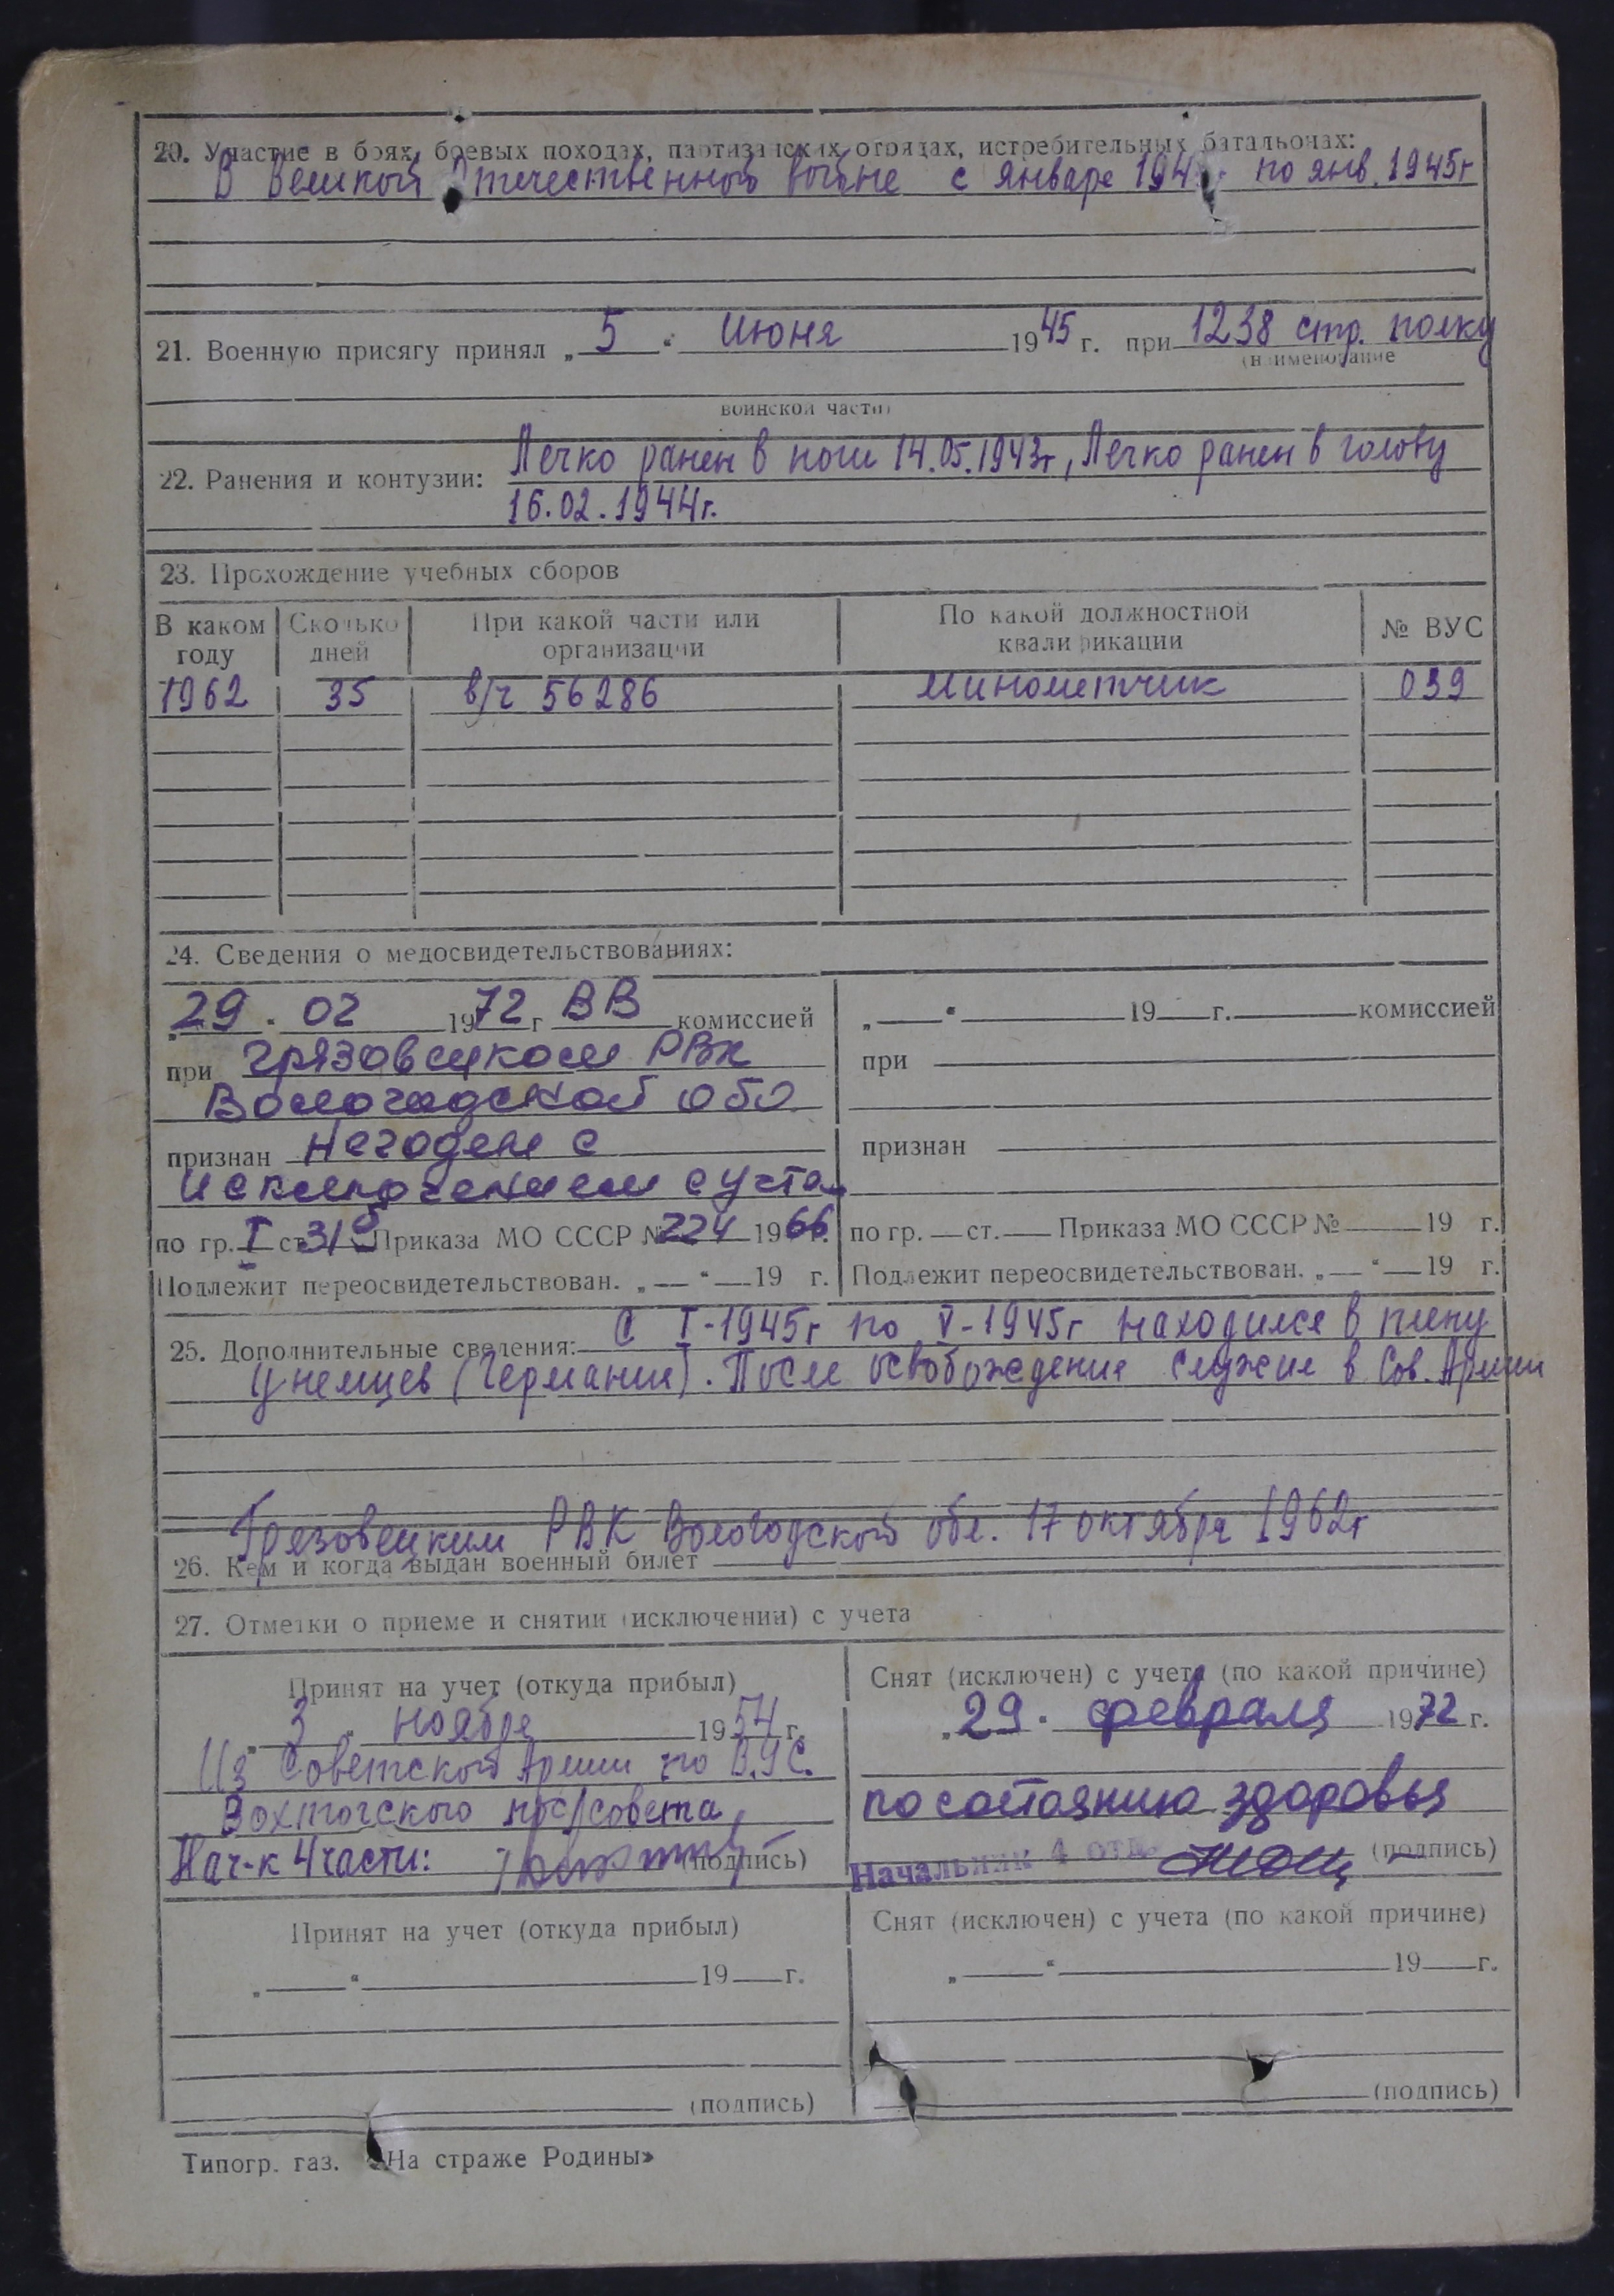 20. Участие в боях, боевых походах, партизанских отрядах, истребительных батальонах:
В Великой Отечественной войне с январе 194 по янв. 1945г
21. Военную присягу принял „ 5 “ июня 1945 г. при 1238 стр. полку
(наименование
воинской части)
22. Ранения и контузии: Легко ранен в ноги 14.05.1943г, Легко ранен в голову
16.02.1944г.
23. Прохождение учебных сборов
В каком году | Сколько дней | При какой части или организации | По какой должностной квалификации | № ВУС
1962 | 35 | в/ч 56286 | минометчик | 039
24. Сведения о медосвидетельствованиях:
„29. 02 1972 г ВВ комиссией
при Грязовецком РВК
Вологодской обл
признан Негоден с
исключением с учета
по гр. I ст. 31б Приказа МО СССР № 224 1966 г.
Подлежит переосвидетельствован. „ “ 19 г.
„ “ 19 г. комиссией
при
признан
по гр. ст. Приказа МО СССР № 19 г.
Подлежит переосвидетельствован. „ “ 19 г.
25. Дополнительные сведения: С I-1945г по V-1945г находился в плену
у немцев (Германии). После освобождения служил в Сов. Армии
Грязовецким РВК Вологодской обл. 17 октября 1962г
26. Кем и когда выдан военный билет
27. Отметки о приеме и снятии (исключении) с учета
Принят на учет (откуда прибыл)
„ 3 “ ноября 1954 г.
Из Советской Армии по В.У.С.
Вохтогского пос/совета,
Нач-к 4 части: (подпись)
Снят (исключен) с учета (по какой причине)
„29. февраля 1972 г.
по состоянию здоровья
Начальник 4 отд. (подпись)
Принят на учет (откуда прибыл)
„ “ 19 г.
(подпись)
Снят (исключен) с учета (по какой причине)
„ “ 19 г.
(подпись)
Типогр. газ. «На страже Родины»